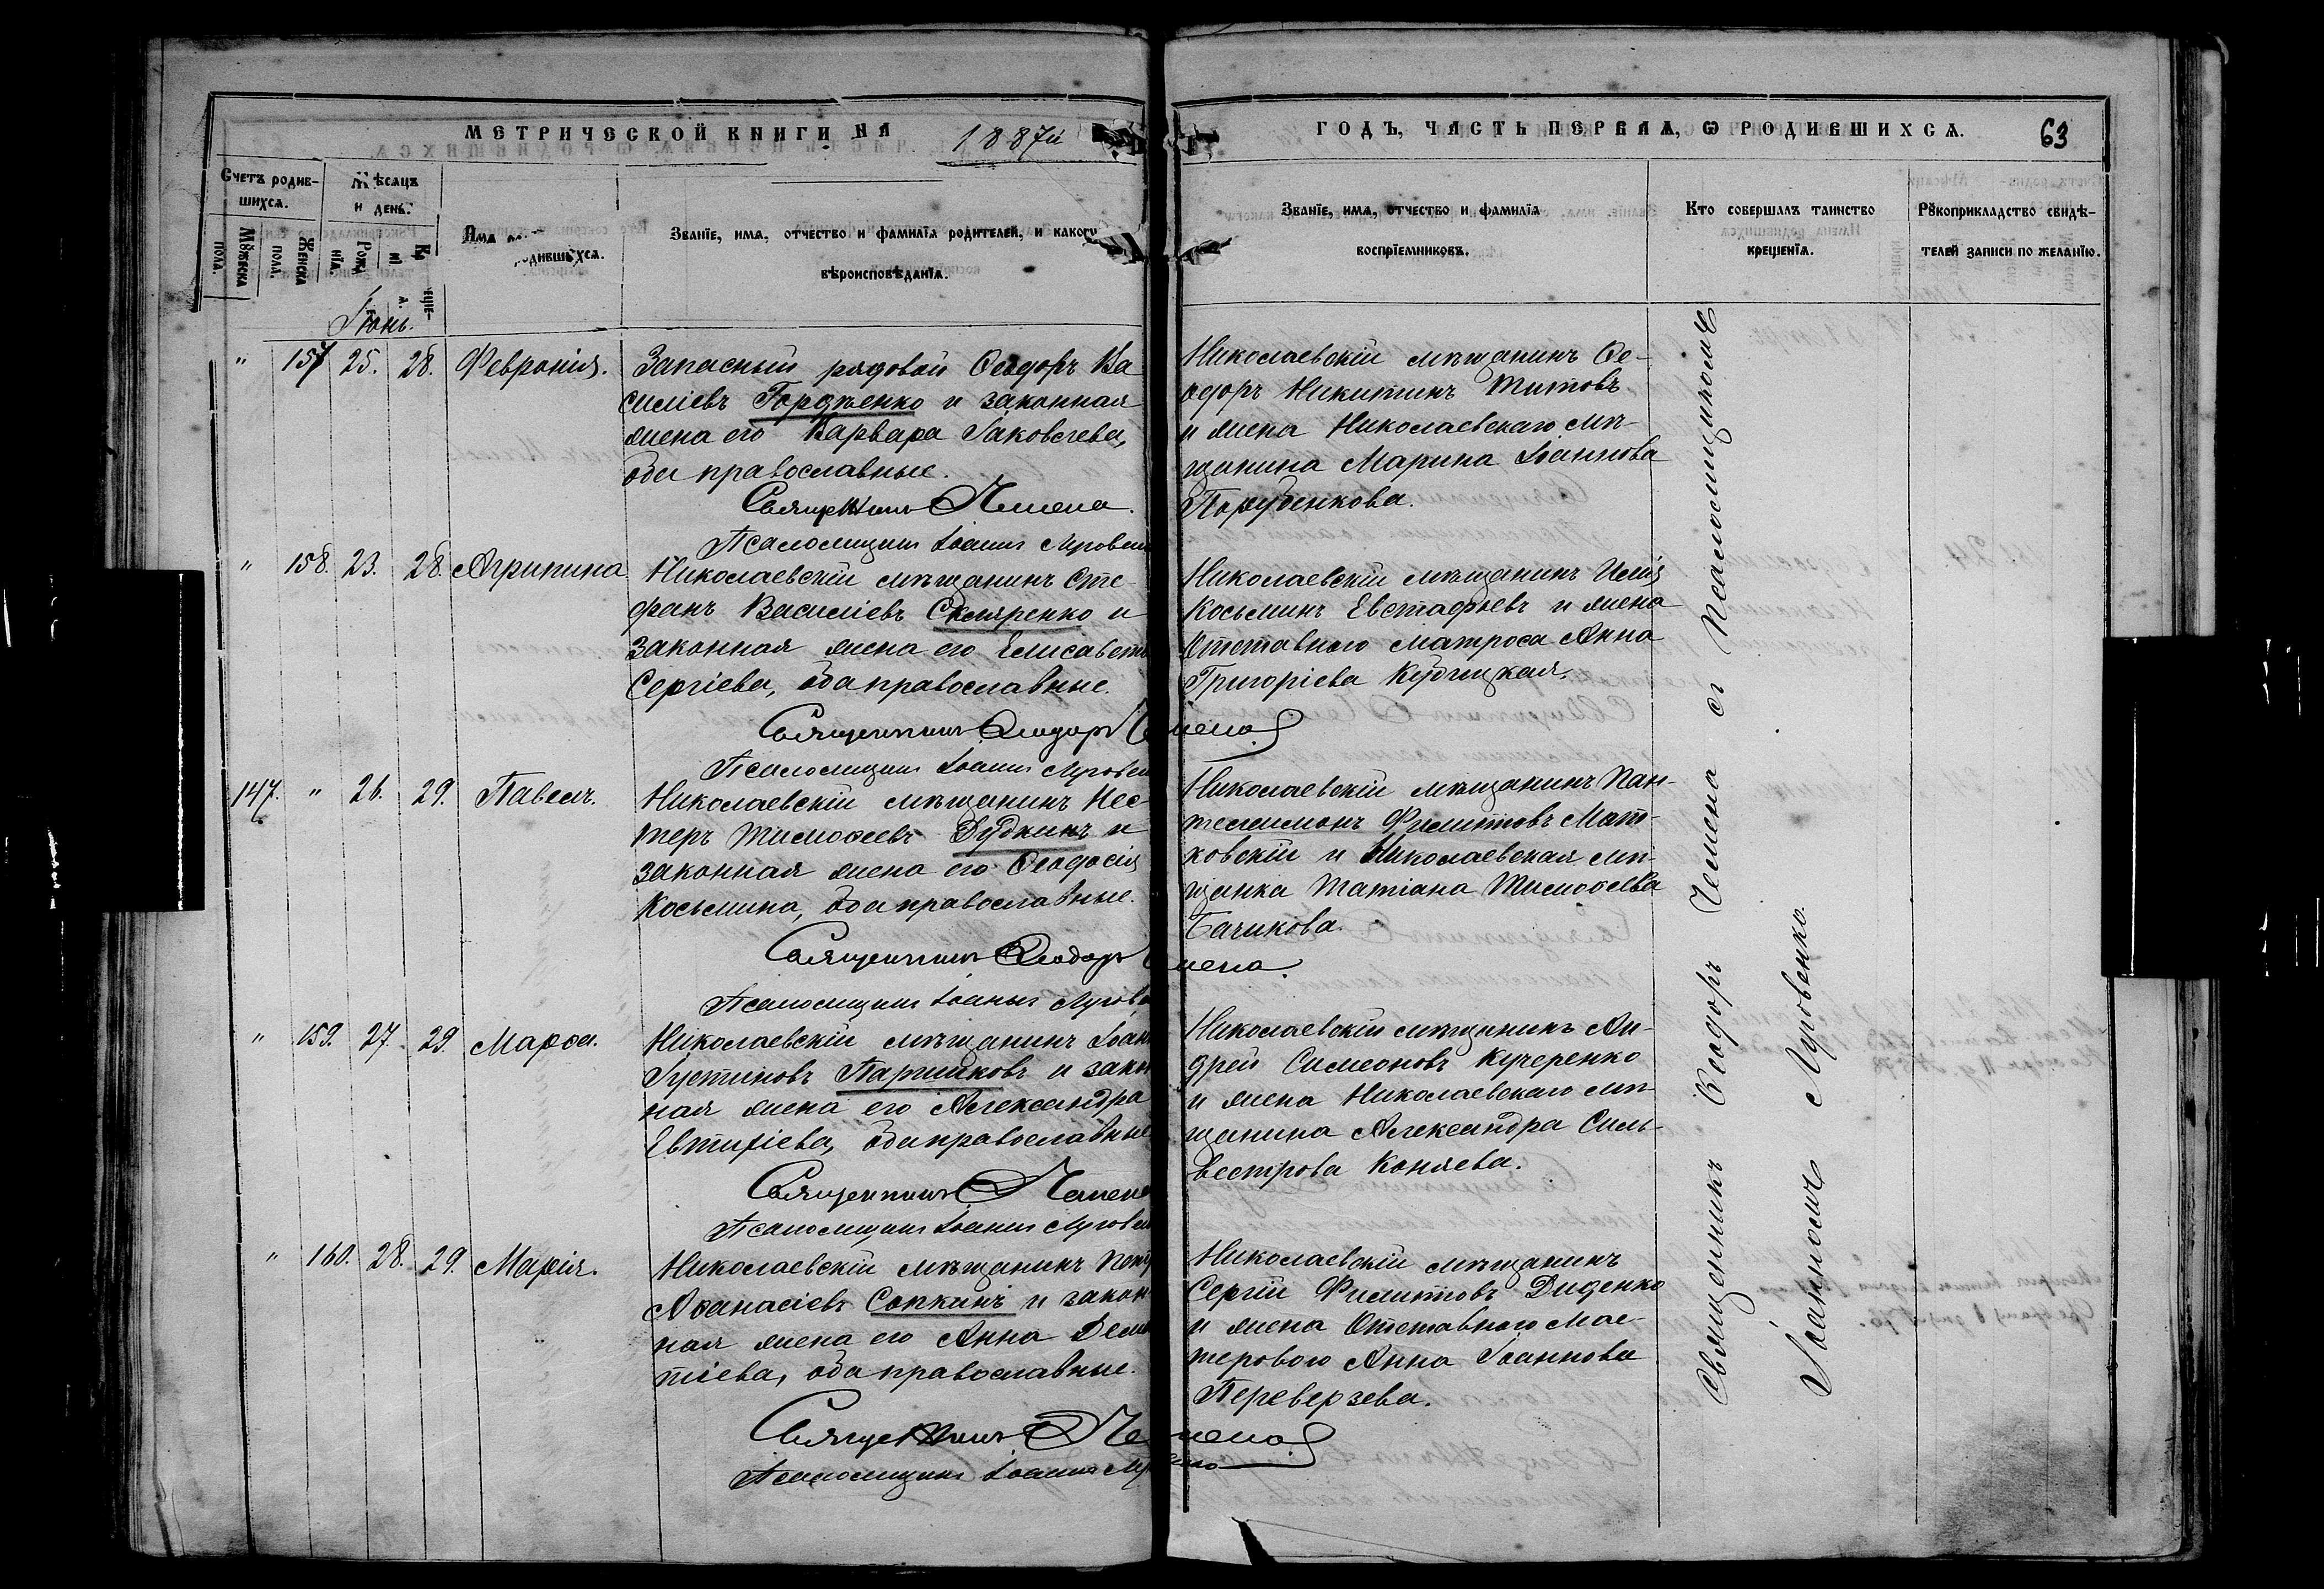 МЕТРИЧЕСКОЙ КНИГИ НА 1887й ГОДЪ, ЧАСТЬ ПЕРВАЯ, Ѡ РОДИВШИХСЯ. 63
Счетъ родив-
шихся.
Мѣсяцъ
и день.
Мꙋжеска
пола.
Женска
пола.
Рож
нїя.
Имя
родившихся.
Званїе, имя, отчество и фамилїя родителей, и какого
вѣроисповѣданїя.
Званїе, имя, отчество и фамилїя
воспрїемниковъ.
Кто совершалъ таинство
крещенїя.
Рꙋкоприкладство свидѣ-
телей записи по желанїю.
Іюнь.
" 157 25. 28. Февронія.
Запасный рядовой Ѳеодоръ Ва
силіевъ Гордѣенко и законная
жена его Варвара Іаковлева,
оба православные.
Священникъ Ѳ Чемена.
Псаломщикъ Іоаннъ Луровен
Николаевскій мѣщанинъ Ѳе-
одоръ Никитинъ Титовъ
и жена Николаевскаго мѣ-
щанина Марина Іоаннова
Порубенкова.
" 158. 23. 28. Агрипина
Николаевскій мѣщанинъ Сте-
фанъ Василіевъ Скляренко и
законная жена его Елисавета
Сергіева, оба православные.
Священникъ Ѳеодоръ Чемена
Псаломщикъ Іоаннъ Луровен
Николаевскій мѣщанинъ Илія
Косьминъ Евстафьевъ и жена
Отставнаго матроса Анна
Григоріева Кудлицкая.
147. " 26. 29. Павелъ.
Николаевскій мѣщанинъ Нес-
теръ Тимоѳеевъ Дудкинъ и
законная жена его Ѳеодосія
Косьмина, оба православные.
Священникъ Ѳеодоръ Чемена.
Псаломщикъ Іоаннъ Лурове
Николаевскій мѣщанинъ Пан-
телеимонъ Филиповъ Мат-
ковскій и Николаевская мѣ-
щанка Татіана Тимоѳеева
Бачикова.
" 159. 27. 29. Марѳа.
Николаевскій мѣщанинъ Іоан
Іустиновъ Паршиковъ и закон
ная жена его Александра
Евтихіева, оба православные
Священникъ Ѳ Чемена
Псаломщикъ Іоаннъ Луровен
Николаевскій мѣщанинъ Ан-
дрей Симеоновъ Кучеренко
и жена Николаевскаго мѣ-
щанина Александра Силь-
вестрова Коняева.
" 160. 28. 29. Марія.
Николаевскій мѣщанинъ Петр
Аѳанасіевъ Сопкинъ и закон
ная жена его Анна Демен
тіева, оба православные.
Священникъ Ѳ Чемена
Псаломщикъ Іоаннъ Луровенко
Николаевскій мѣщанинъ
Сергій Филиповъ Диденко
и жена Отставного Мас-
терового Анна Іоаннова
Переверзева.
Священникъ Ѳеодоръ Чемена съ Псаломщикомъ
Іоанномъ Луровенко.